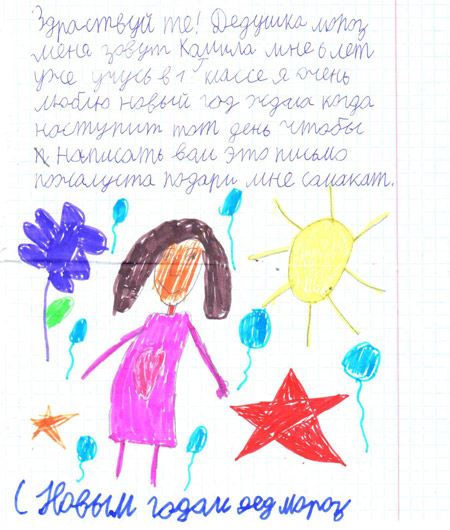 Здраствуй те! Дедушка мороз
меня зовут Камила мне 6 лет
уже учусь в 1 классе я очень
люблю новый год ждла когда
наступит тот день чтобы
написать вам это письмо
пожалуста подари мне самакат.
С Новым годам дед мороз